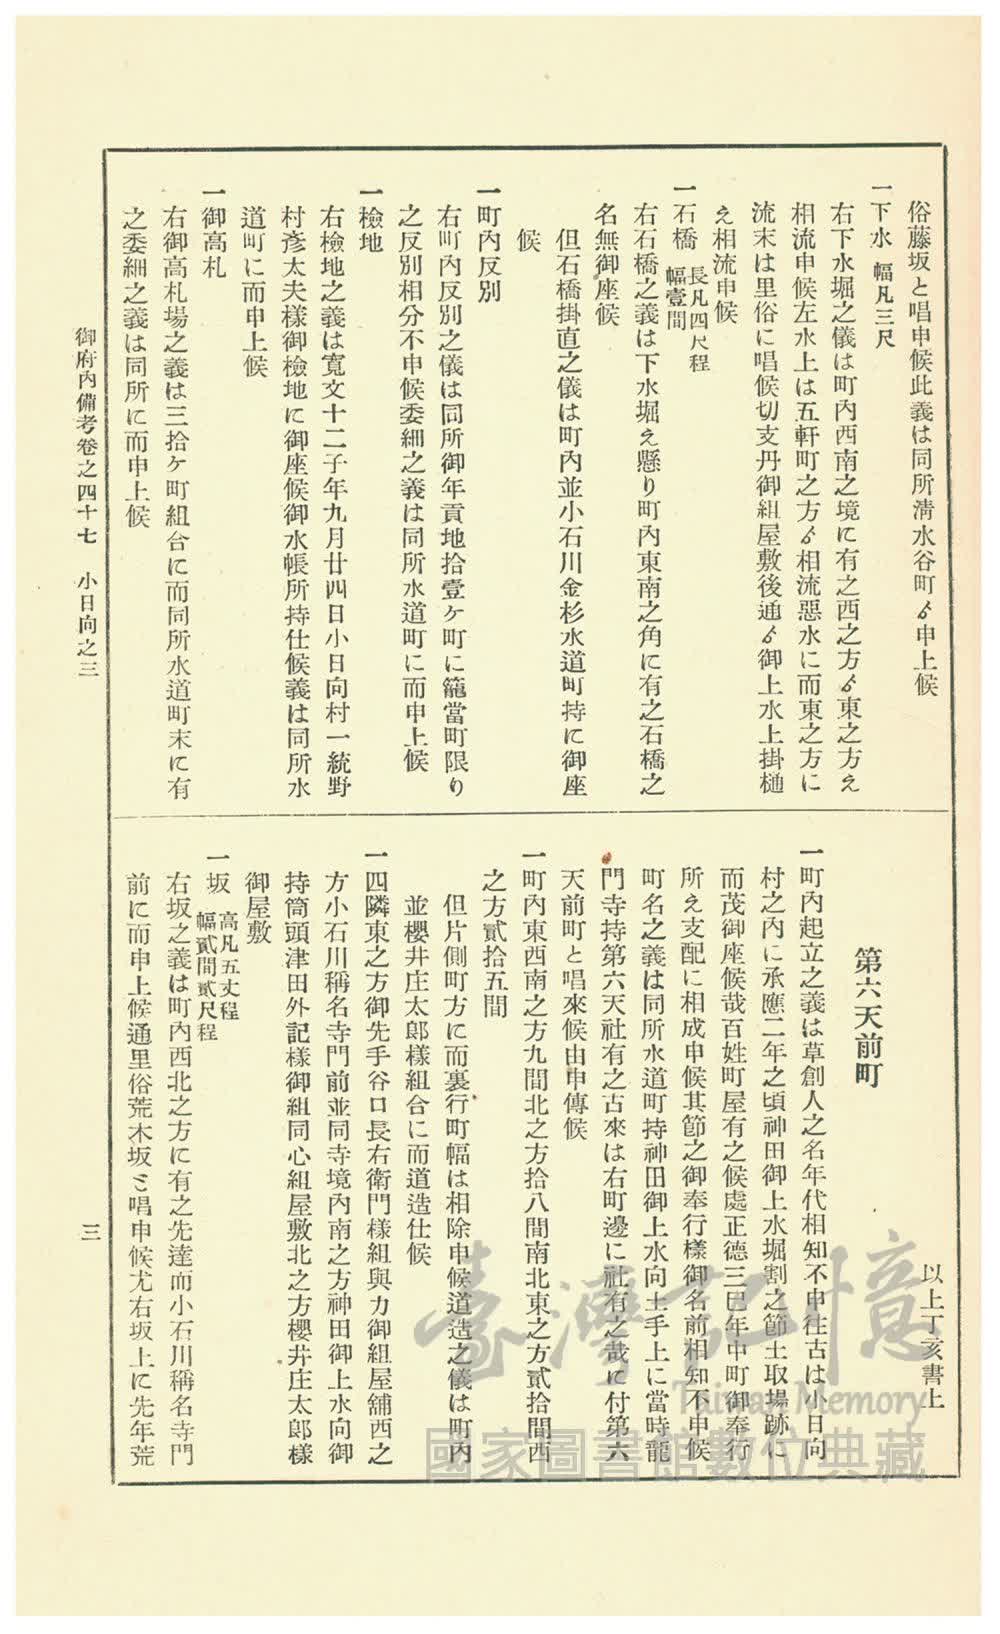 俗藤坂と唱申候此義は同所淸水谷町ゟ申上候
一下水 幅凡三尺
右下水堀之儀は町內西南之境に有之西之方ゟ東之方え
相流申候左水上は五軒町之方ゟ相流惡水に而東之方に
流末は里俗に唱候切支丹御組屋敷後通ゟ御上水上掛樋
え相流申候
一石橋 長凡四尺程
幅壹間
右石橋之義は下水堀え懸り町內東南之角に有之石橋之
名無御座候
但石橋掛直之儀は町內並小石川金杉水道町持に御座
候
一町內反別
右町內反別之儀は同所御年貢地拾壹ケ町に籠當町限り
之反別相分不申候委細之義は同所水道町に而申上候
一檢地
右檢地之義は寬文十二子年九月廿四日小日向村一統野
村彥太夫樣御檢地に御座候御水帳所持仕候義は同所水
道町に而申上候
一御高札
右御高札場之義は三拾ケ町組合に而同所水道町末に有
之委細之義は同所に而申上候
以上丁亥書上
第六天前町
一町內起立之義は草創人之名年代相知不申往古は小日向
村之內に承應二年之頃神田御上水堀割之節土取場跡に
而茂御座候哉百姓町屋有之候處正德三巳年中町御奉行
所え支配に相成申候其節之御奉行樣御名前相知不申候
町名之義は同所水道町持神田御上水向土手上に當時龍
門寺持第六天社有之古來は右町邊に社有之哉に付第六
天前町と唱來候由申傳候
一町內東西南之方九間北之方拾八間南北東之方貳拾間西
之方貳拾五間
但片側町方に而裏行町幅は相除申候道造之儀は町內
並櫻井庄太郞樣組合に而道造仕候
一四隣東之方御先手谷口長右衞門樣組與力御組屋舖西之
方小石川稱名寺門前並同寺境內南之方神田御上水向御
持筒頭津田外記樣御組同心組屋敷北之方櫻井庄太郞樣
御屋敷
一坂 高凡五丈程
幅貳間貳尺程
右坂之義は町內西北之方に有之先達而小石川稱名寺門
前に而申上候通里俗荒木坂と唱申候尤右坂上に先年荒
御府內備考卷之四十七 小日向之三
三
臺灣記憶
Taiwan Memory
國家圖書館數位典藏